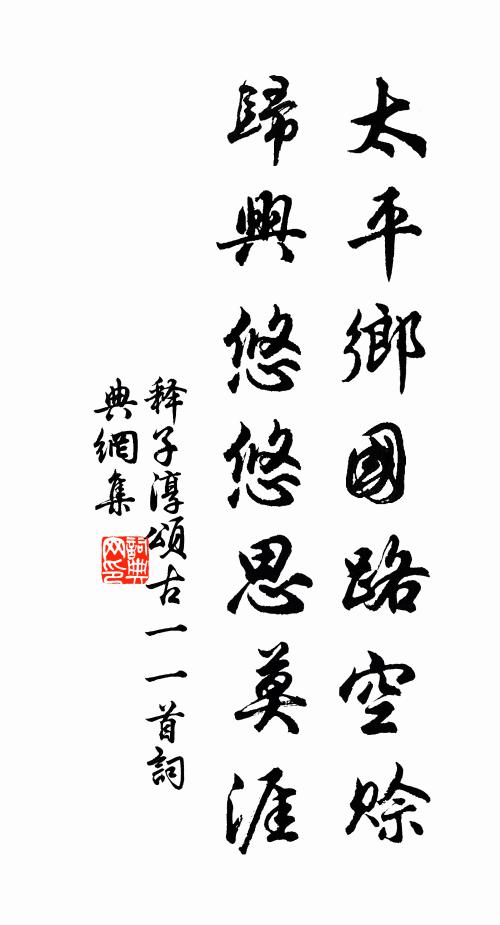 太平鄉國路空賒
歸興悠悠思莫涯
释子淳頌古一一首詞
典網集
詞典网印